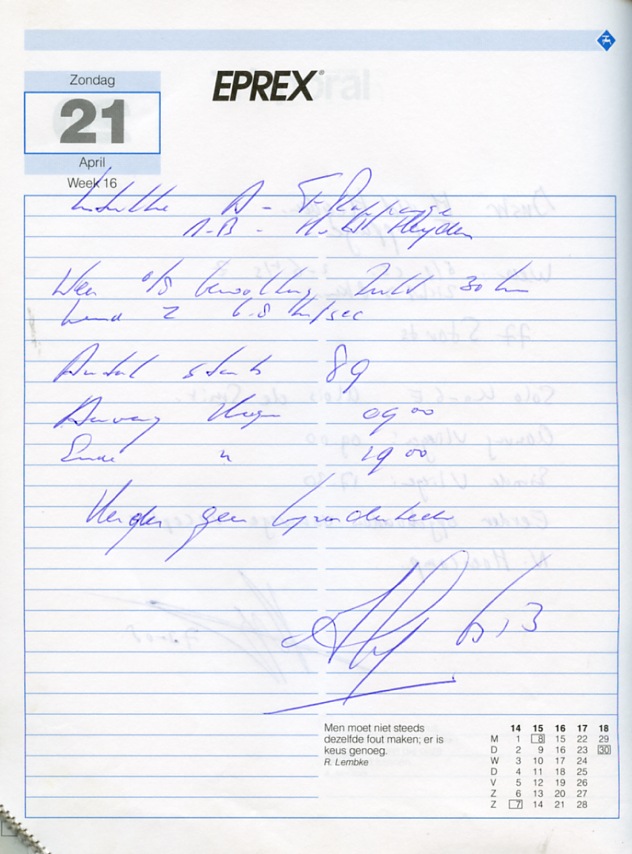 Zondag
EPREX
21
April
Week 16
A - F. Rappange
A-B - H. vd Heyden
Weer 0/8 bewolking Zicht 30 km
Wind Z 6-8 km/sec
Aantal starts 89
Aanvang vliegen 09 00
Einde " 19 00
Verder geen bijzonderheden
Men moet niet steeds
dezelfde fout maken; er is
keus genoeg.
R. Lembke
14 15 16 17 18
M 1 8 15 22 29
D 2 9 16 23 30
W 3 10 17 24
D 4 11 18 25
V 5 12 19 26
Z 6 13 20 27
Z 7 14 21 28